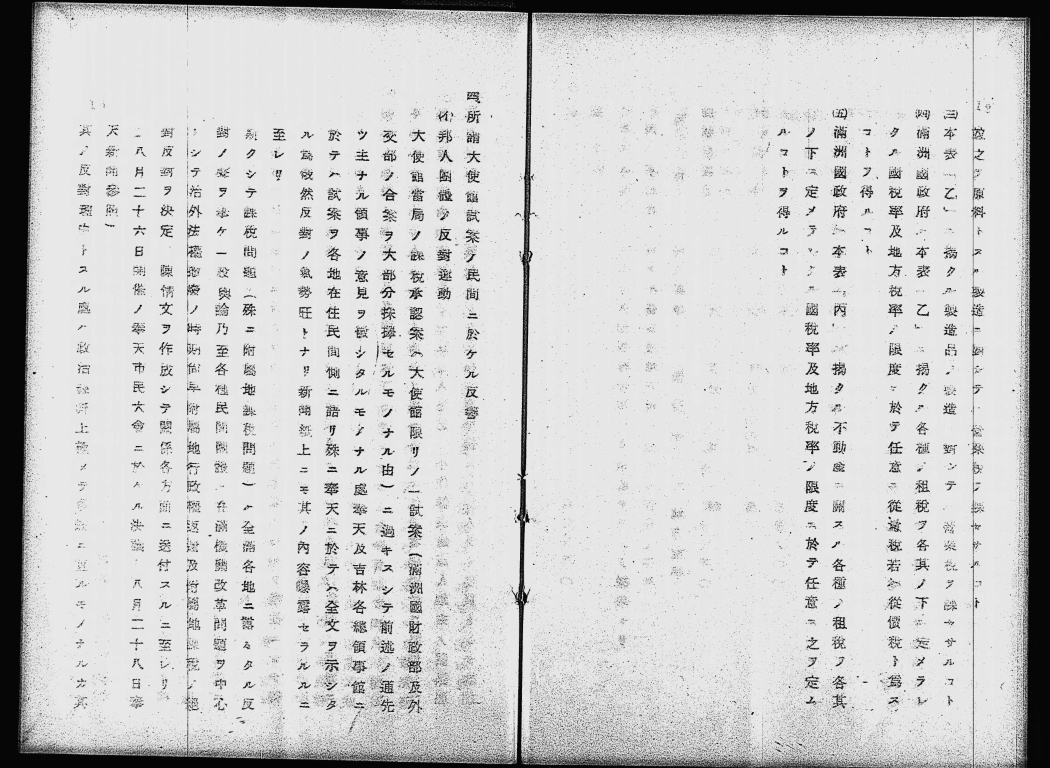 之ヲ原料トスル製造ニ對シテ
三本表「乙」ニ掲クル製造品ノ製造ニ對シテハ營業稅ヲ課セサルコト
四滿洲國政府ハ本表「乙」ニ掲クル各種ノ租稅ヲ各其ノ下ニ定メラレ
タル國稅率及地方稅率ノ限度ニ於テ任意ニ從量稅若ハ從價稅ト爲ス
コトヲ得ルコト
滿洲國政府ハ本表「丙」ニ掲クル不動產ニ關スル各種ノ租稅ヲ各其
ノ下ニ定メラレタル國稅率及地方稅率ノ限度ニ於テ任意ニ之ヲ定ム
ルコトヲ得ルコト
四、所謂大使館試案ノ民間ニ於ケル反響
イ、邦人團體ノ反對運動
大使館當局ノ課稅承認案ハ大使館限リノ一試案（滿洲國財政部及外
交部ノ合案ヲ大部分採擇セルモノナル由）ニ過キスシテ前述ノ通先
ツ主ナル領事ノ意見ヲ徵シタルモノナル處奉天及吉林各總領事館ニ
於テハ試案ヲ各地在住民間側ニ諮リ殊ニ奉天ニ於テハ全文ヲ示シタ
ル爲俄然反對ノ氣勢旺トナリ新聞紙上ニモ其ノ內容曝露セラルルニ
至レリ
斯クシテ課稅問題（殊ニ附屬地課稅問題）ハ全滿各地ニ囂々タル反
對ノ聲ヲ擧ケ一般輿論乃至各種民間團體ハ在滿機關改革問題ヲ中心
トシテ治外法權撤廢ノ時期尙早附屬地行政權返還及附屬地課稅ノ絕
對反對ヲ決定シ陳情文ヲ作成シテ關係各方面ニ送付スルニ至レリ
八月二十六日開催ノ奉天市民大會ニ於ケル決議 八月二十八日奉
天新聞參照
其ノ反對理由トスル處ハ政治經濟上極メテ